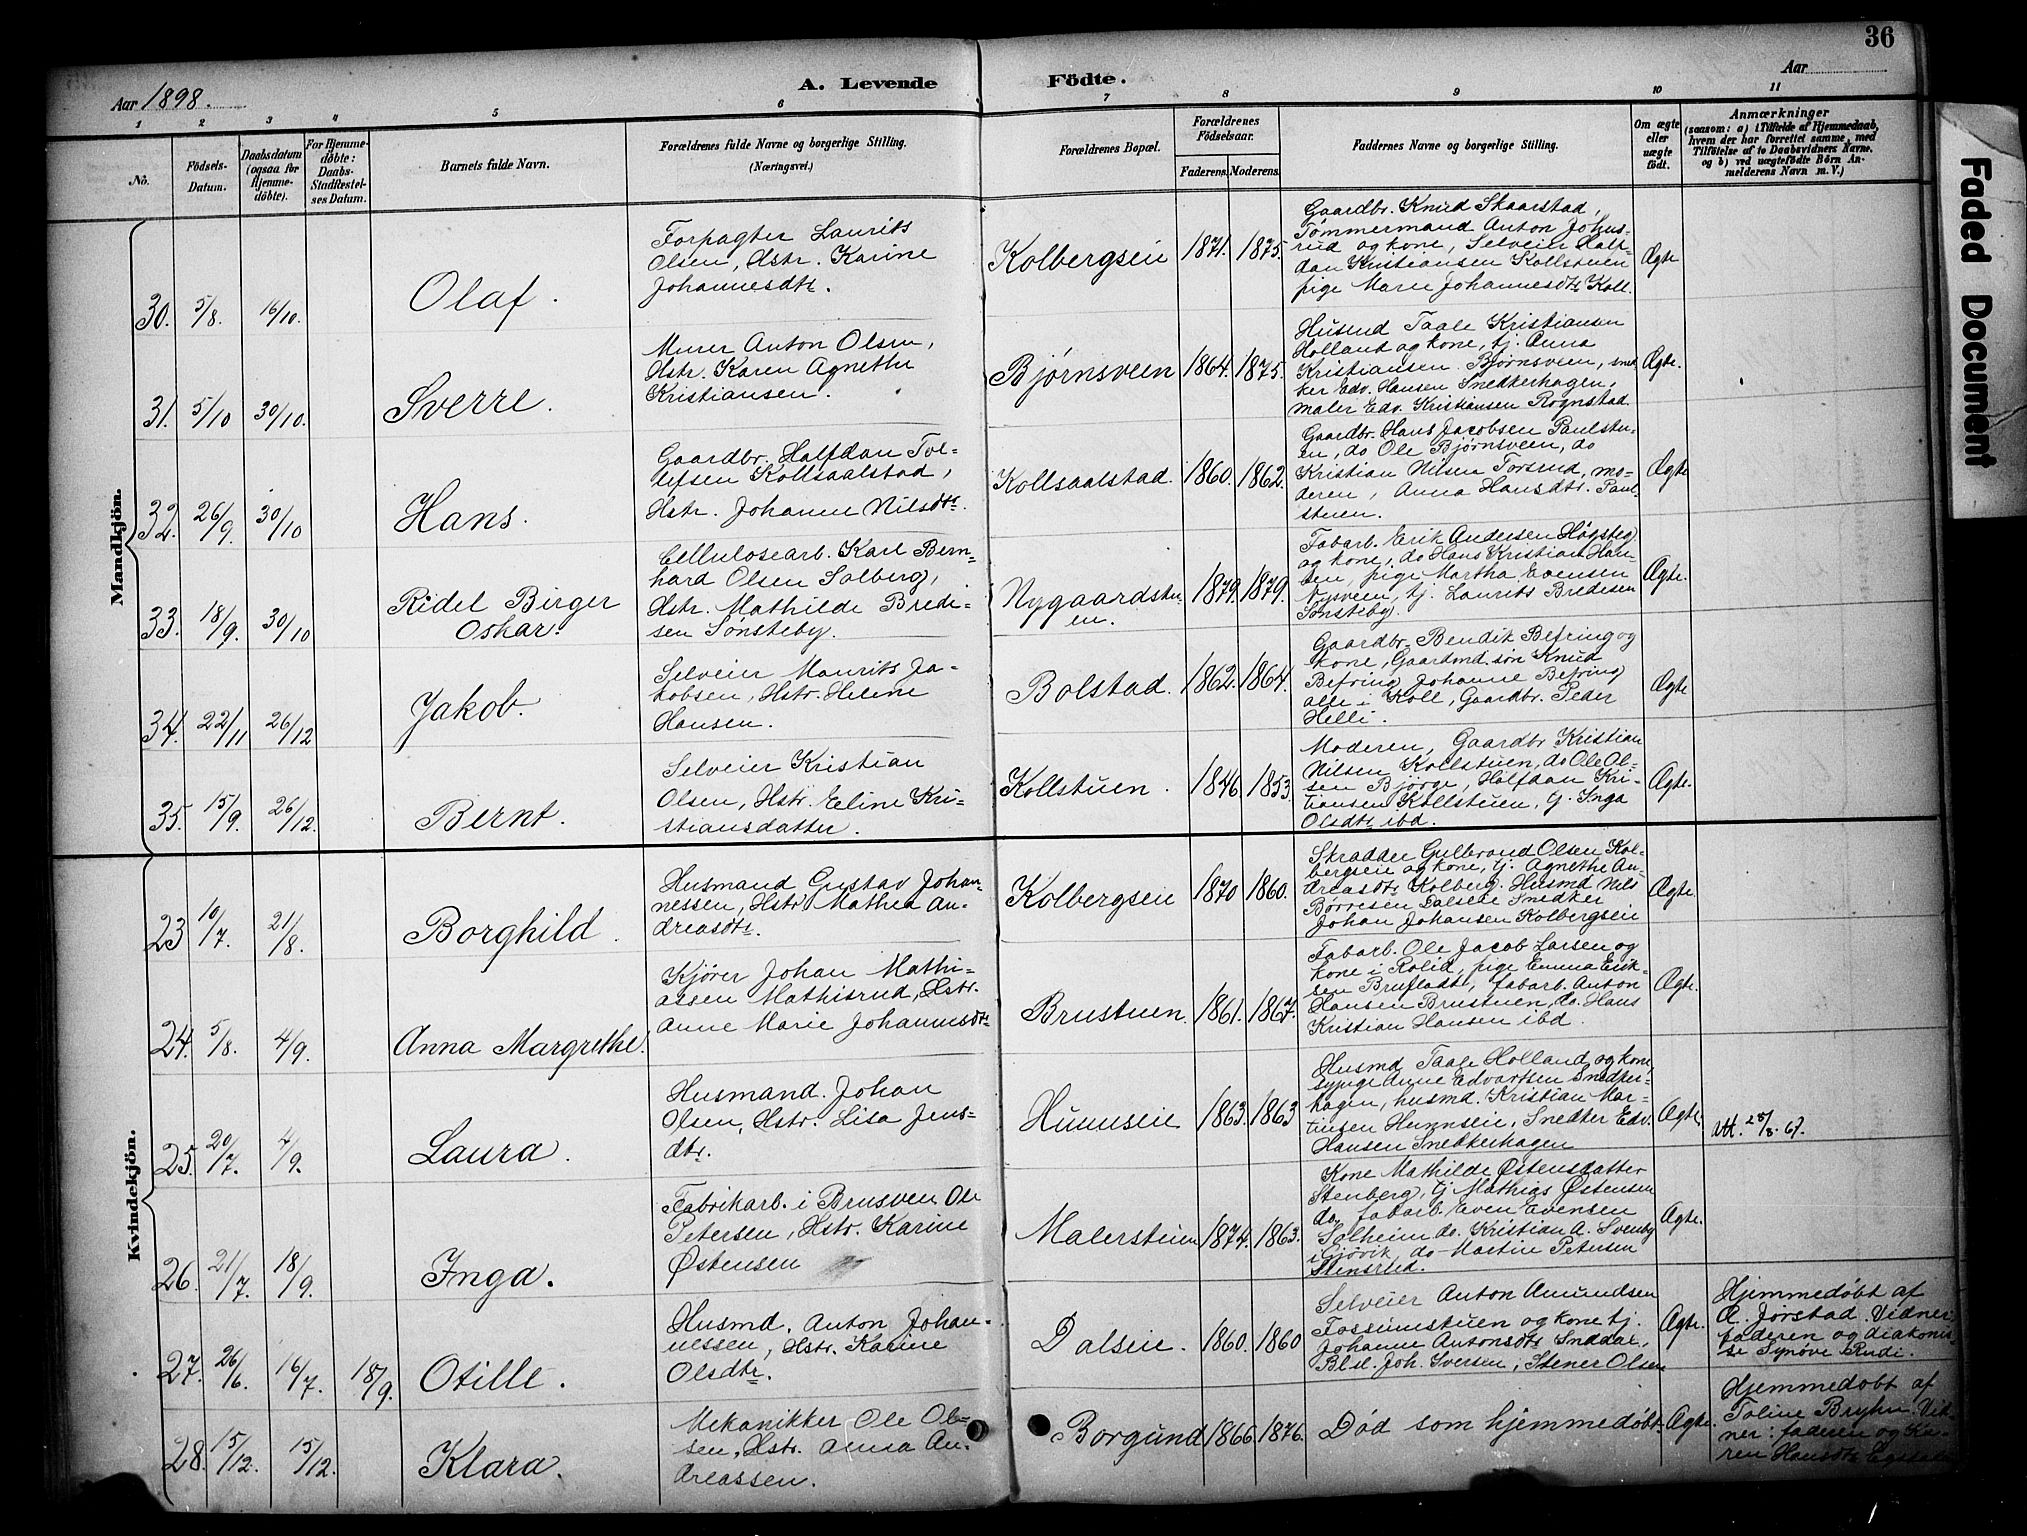 36
Aar 1898.
A. Levende Födte.
Aar
1 2 3 4 5 6 7 8 9 10 11
No.
Födsels-Datum.
Daabsdatum (ogsaa for Hjemme-döbte).
For Hjemme-döbte: Daabs-Stadfæstel-ses Datum.
Barnets fulde Navn.
Forældrenes fulde Navne og borgerlige Stilling. (Næringsvei.)
Forældrenes Bopæl.
Forældrenes Födselsaar.
Faderens. Moderens.
Faddernes Navne og borgerlige Stilling.
Om ægte eller uægte födt.
Anmærkninger
(saasom: a) i Tilfælde af Hjemmedaab,
hvem der har forrettet samme, med
Tilföielse af to Daabsvidners Navne,
og b) ved uægtefödte Börn An-
melderens Navn m. V.)
Mandkjön.
30. 5/8. 16/10. Olaf.
Forpagter Laurits
Olsen, Hstr. Karine
Johannesdtr.
Kolbergseie 1871. 1875.
Gaardbr. Knud Skaarstad,
Tømmermand Anton Johns-
rud og kone, Selveier Half-
dan Kristiansen Kollstuen
pige Marie Johannesdtr Koll.
Ægte
31. 5/10 30/10. Sverre.
Murer Anton Olsen,
Hstr. Karen Agnethe
Kristiansen.
Bjørnsveen 1864. 1875.
Husmd Taale Kristiansen
Holland og kone, tj. Anna
Kristiansen Bjørnsveen, sned-
ker Edv. Hansen Snedkerhagen,
maler Edv. Kristiansen Rognstad.
Ægte.
32. 26/9. 30/10 Hans.
Gaardbr. Halfdan Tol-
lefsen Kollsaalstad,
Hstr. Johanne Nilsdtr.
Kollsaalstad. 1860. 1862.
Gaardbr. Hans Jacobsen Paulstu-
en, do Ole Bjørnsveen, do
Kristian Nilsen Torsrud, mo-
deren, Anna Hansdtr. Paul-
stuen.
Ægte
33. 18/9. 30/10 Ridel Birger
Oskar.
Cellulosearb. Karl Bern-
hard Olsen Solberg,
Hstr. Mathilde Brede-
sen Sønsteby.
Nygaardstu-
en. 1879. 1879.
Fabarb. Erik Andersen Høgsteg
og kone, do Hans Kristian Han-
sen, pige Martha Evensen
Nysveen, tj. Laurits Bredesen
Sønsteby.
Ægte.
34. 22/11 26/12 Jakob.
Selveier Maurits Ja-
kobsen, Hstr. Helene
Hansen.
Bolstad. 1862. 1864.
Gaardbr. Bendik Befring og
kone, Gaardmd.søn Knud
Befring Johanne Befring
alle i Koll, Gaardbr. Peder
Helli.
Ægte
35. 15/9. 26/12. Bernt.
Selveier Kristian
Olsen, Hstr. Eline Kri-
stiansdatter.
Kollstuen. 1846. 1853.
Moderen, Gaardbr Kristian
Nilsen Kollstuen, do Ole Ol-
sen Bjørge, Halfdan Kri-
stiansen Kollstuen, tj. Inga
Olsdtr ibd.
Ægte.
Kvindekjön.
23 10/7. 21/8. Borghild.
Husmand Gustav Johan-
nessen, Hstr Mathea An-
dreasdtr.
Kolbergseie 1870 1860.
Skrædder Gulbrand Olsen Kol-
bergseie og kone, tj. Agnethe An-
dreasdtr Kolberg. Husmd Nils
Børresen Dalseie Snedker
Johan Johansen Kolbergseie
Ægte.
24. 5/8. 4/9. Anna Margrethe.
Kjører Johan Mathi-
assen Mathisrud, Hstr.
Anne Marie Johannesdtr
Brustuen. 1861. 1867.
Fabarb. Ole Jacob Larsen og
kone i Rolid, pige Emma Erik-
sen Brufladt, fabarb. Anton
Hansen Brustuen, do. Hans
Kristian Hansen ibd.
Ægte.
25. 20/7. 4/9. Laura.
Husmand. Johan
Olsen, Hstr. Lisa Jens-
dtr.
Hunnseie 1863. 1863
Husmd Taale Holland og kone,
sypige Anne Edvartsen Snedker-
hagen, husmd. Kristian Mar-
tinsen Hunnseie, Snedker Edv.
Hansen Snedkerhagen
Ægte.
Att. 25/8. 67.
26. 21/7. 18/9. Inga.
Fabrikarb. i Brusveen Ole
Petersen, Hstr. Karine
Østensen
Malerstuen 1874. 1863.
Kone Mathilde Østensdatter
Stenberg, tj Mathias Østensen
do, fabarb. Even Evensen
Solheim do. Kristian A. Svenby
i Gjøvik, do Martin Petersen
Stensrud.
Ægte.
27. 26/6. 16/7. 18/9. Otille.
Husmd. Anton Johan-
nessen, Hstr. Karine
Olsdtr.
Dalseie. 1860. 1860
Selveier Anton Amundsen
Fossumstuen og kone tj.
Johanne Antonsdtr Snddal,
Blsl. Joh. Iversen, Stener Olsen
Ægte.
Hjemmedøbt af
O. Jørstad. Vidner:
faderen og diakonis-
se Synøve Rudi.
28. 15/12. 15/12. Klara.
Mekanikker Ole Ol-
sen, Hstr. Anna An-
dreassen.
Borgund 1866. 1876.
Død som hjemmedøbt.
Ægte.
Hjemmedøbt af
Toline Bryhn. Vid-
ner: faderen og Ka-
ren Hansdtr
Faded Document